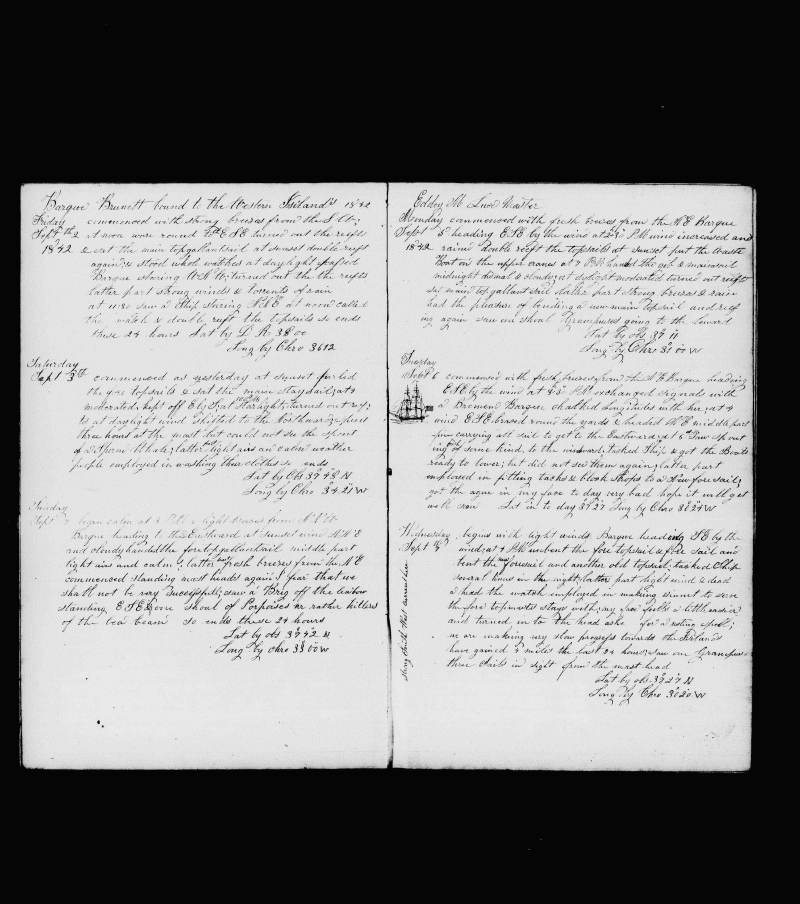 Barque Brunett bound to the Western Iseland's 1842
Friday commenced with strong breeses from the S W;
Sept th 2 at noon wore round to ESE turned out the reefts
1842 & set the main topgallantsail at sunset double reeft
again; & stood whole watches at daylight passed
Barque stearing WNW; turned out the the reefts
latter part strong winds & torrents of rain
at 11:30 saw a Ship staring at noon called
the watch & double reeft the topsails so ends
these 24 hours Lat by D R. 38 00
Long by Chro 36 12
Saturday
Sept 3d commenced as yesterday at sunset furled
the topsails & sat the main staysail; at 9
moderated; kept off E by S; at starlight; turned out reef;
ts at daylight wind shifted to the Northward; spent
three hours at the mast but could not see the spout
of a Sperm Whale; latter light airs an calm weather
people employed in washing their clothes so ends
Lat by Obs 37 48 N
Long by Chro 34 21 W
Sunday
Sept began calm at 4 PM a light breeses from
Barque heading to the Eastward at Sunset wind NNE
and cloudy handed the foretopgallantsail middle part
light airs and calm; latter fresh breeses from the NE
commenced standing mast heads again I fear that we
shall not be very Successfull; saw a Brig off the leabow
standing ESE & one shoal of Porpoises or rather killers
of the lea beam so ends these 24 hours
Lat by obs 37 42 N
Long by chro 33 00 W
Eddey M Luce Master
Monday commenced with fresh breses from the NE Barque
Sept 5 heading ESE by the wind at PM wind increased and
1842 rained double reeft the topsails at sunset put the Waste
Boat on the upper cranes at 7 PM hauld the gib & mainsail
midnight dismal & cloudy at dylight moderated turned out reefts
set main topgallant sail latter part strong breeses & rain
had the pleasure of bending a new main topsail and reef
ing again saw one shoal Grampuses going to the leward
Lat by obs 37 11
Long by Chro 31 00 W
Tuesday
Sept 6 commenced with fresh breeses from the NE Barque heading
ESE by the wind at PM exchanged signals with
a Bremen Barque chalked Longitudes with her; at 4
wind ESE brased round the yards & headed NE middle part
fine carrying all sail to get to the Eastward; at 6 saw sp out
ing of some kind, to the windward; tacked Ship & got the Boats
ready to lower; but did not see them again; latter part
employed in fitting tacks & block strops to a new foresail;
got the ague in my face to day very bad hope it will get
well soon Lat in to day 37 27 Long by Chro 30 24 W
Wednesday begins with light winds Barque heading SE by the
Sept 7 wind; at 4 PM unbent the fore topsail & fore sail and
bent the new foresail and another old topsail; tacked Ship
several times in the night; latter part light wind & dead
a head the watch employed in making sinnet to serve
the fore topmast stays with; my face feels a little easier
and turned in to the head ache for a resting spell;
we are making very slow progress towards the Islands
have gained 4 miles the last 24 hours; saw one Grampus
three Sails in sight from the mast head
Lat by obs 37 27 N
Long by Chro 30 20 W